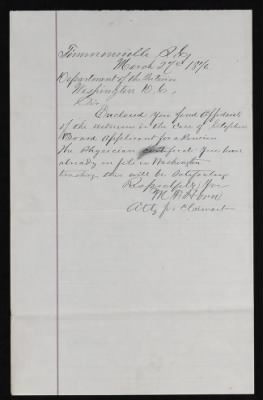 Timmonsville S.C.
March 27th 1896
Department of the Interior
Washington D.C.
Sir
Enclosed you find Affidavit
of the witnesses in the case of
Board applicant for Pension
the Physician certificate you have
already on file in Washington
trusting this will be Satisfactory
Respectfully yrs
M. R. Horn
Atty for Claimant